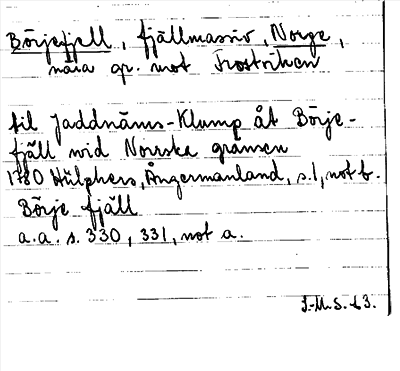 Börjefjell, fjällmassiv, Norge,
nära gr. mot Frostviken
til Jaddnäms-Klump åt Börje-
fjäll wid Norska gränsen
1780 Hülphers, Ångermanland, s. 1, not b.
Börje fjäll
a.a. s. 330, 331, not a.
I.-M.S.-63.